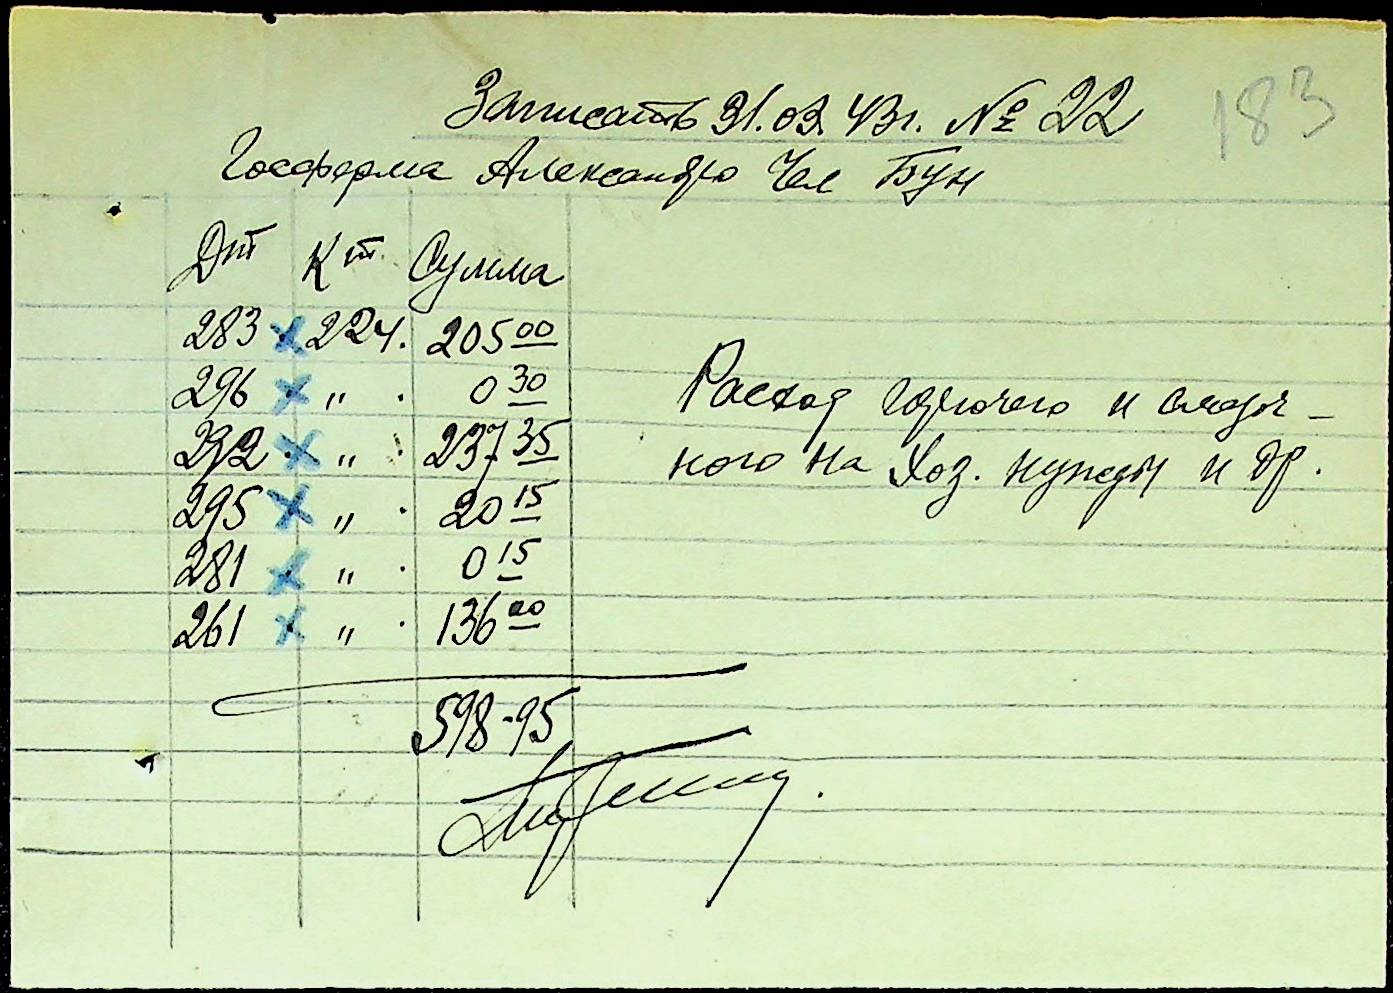 183
Записать 31.03.43г. № 22
Госферма Александро Чел Бун
Дт Кт. Сумма
283 х 224. 205 00
296 х " . 0 30
292 х " . 237 35
295 х " . 20 15
281 х " . 0 15
261 х " . 136 00
598-95
Расход горючего и смазоч-
ного на хоз. нужды и др.